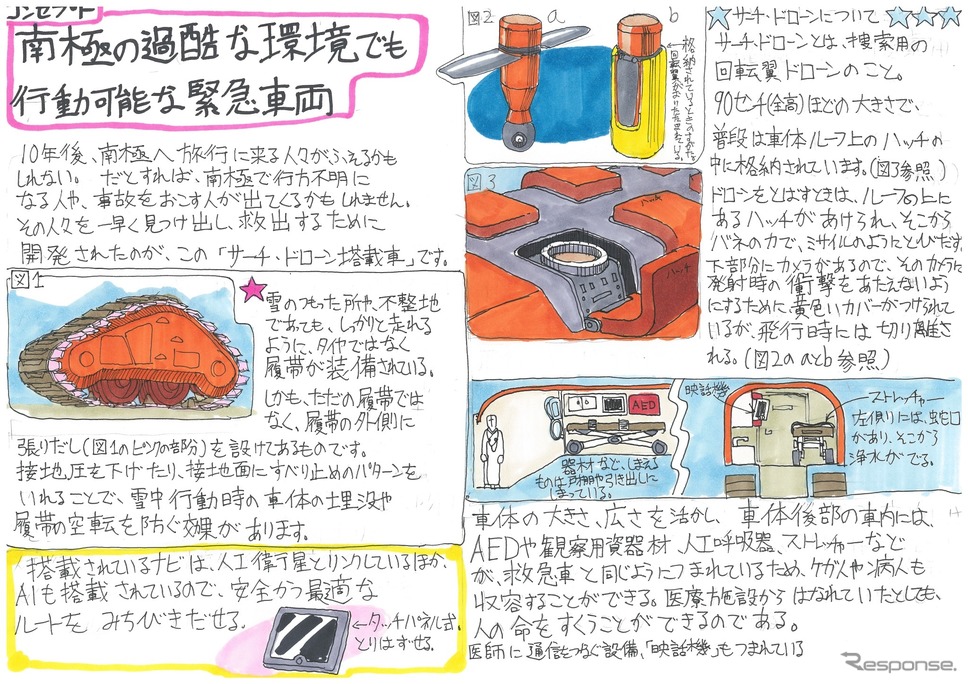 コンセプト
南極の過酷な環境でも
行動可能な緊急車両
10年後、南極へ旅行に来る人々がふえるかも
しれない。だとすれば、南極で行方不明に
なる人や、事故をおこす人が出てくるかもしれません。
その人々を一早く見つけ出し、救出するために
開発されたのが、この「サーチ・ドローン搭載車」です。
図1
雪のつもった所や、不整地
であっても、しっかりと走れる
ように、タイヤではなく
履帯が装備されている。
しかも、ただの履帯では
なく、履帯の外側に
張りだし(図1のピンクの部分)を設けてあるものです。
接地圧を下げたり、接地面にすべり止めのパターンを
いれることで、雪中行動時の車体の埋没や
履帯の空転を防ぐ効果があります。
搭載されているナビは、人工衛星とリンクしているほか、
AIも搭載されているので、安全かつ最適な
ルートをみちびきだせる。
←タッチパネル式
とりはずせる。
図2
a
b
格納されているときのすがた
回転翼がおりたたまれている。
図3
ハッチ
ハッチ
サーチ・ドローンについて
サーチ・ドローンとは、捜索用の
回転翼ドローンのこと。
90センチ(全高)ほどの大きさで、
普段は車体ルーフ上のハッチの
中に格納されています。(図3参照)
ドローンをとばすときは、ルーフの上に
あるハッチがあけられ、そこから
バネの力で、ミサイルのようにとびだす
下部分にカメラがあるので、そのカメラに
発射時の衝撃をあたえないよう
にするために、黄色いカバーがつけられて
いるが、飛行時には切り離さ
れる。(図2のaとb参照)
AED
器材など、しまえる
ものは戸棚や引き出しに
しまっている。
映話機
ストレッチャー
左側には、蛇口
があり、そこから
浄水がでる。
車体の大きさ、広さを活かし、車体後部の車内には、
AEDや観察用資器材、人工呼吸器、ストレッチャーなど
が、救急車と同じようにつまれているため、ケガ人や病人も
収容することができる。医療施設からはなれていたとしても、
人の命をすくうことができるのである。
医師に通信をつなぐ設備、「映話機」もつまれている
Response.